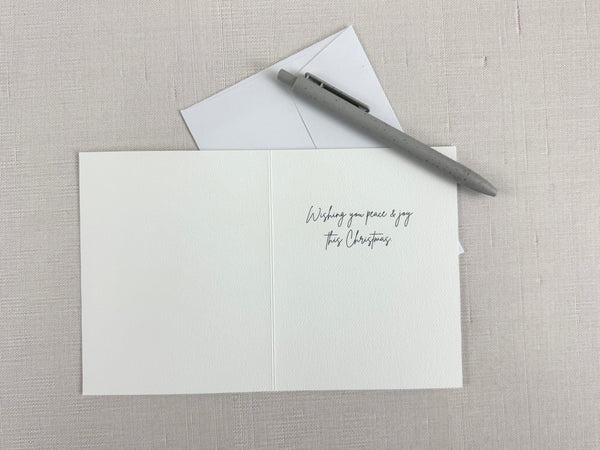 Wishing you peace & joy
this Christmas